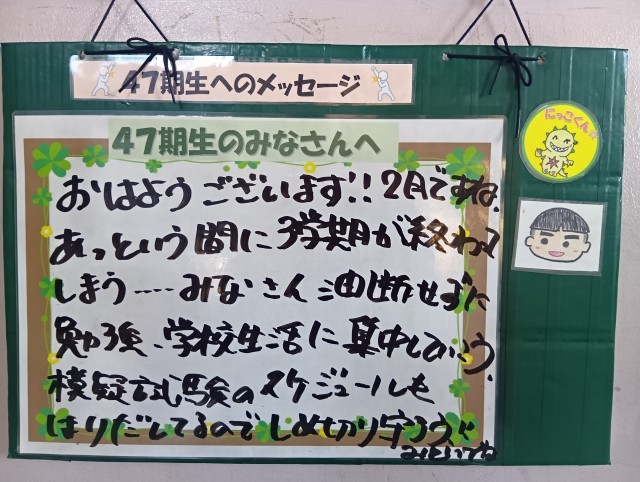 47期生へのメッセージ
にっこくん
47期生のみなさんへ
おはようございます!!2月ですね、
あっという間に3学期が終わって
しまう……みなさん油断せずに
勉強、学校生活に集中していこう、
模擬試験のスケジュールも
はりだしてるのでしめ切り守ろう!!
みといてね